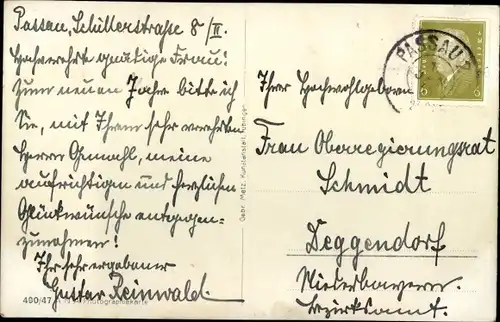 Passau, Schüllerstraße 8/II.
Hochverehrte gnädige Frau!
Zum neuen Jahre bitte ich
Sie, mit Ihrem sehr verehrten
Herrn Gemahl, meine
aufrichtigen und herzlichen
Glückwünsche entgegen-
zunehmen!
Ihr sehr ergebener
Gustav Reinwald.
400/47
Photographiekarte
Gebr. Metz, Kunstanstalt, Tübingen
PASSAU
6 6
Ihrer Hochwohlgeboren
Frau Oberregierungsrat
Schmidt
Deggendorf
Niederbayern.
Bezirksamt.